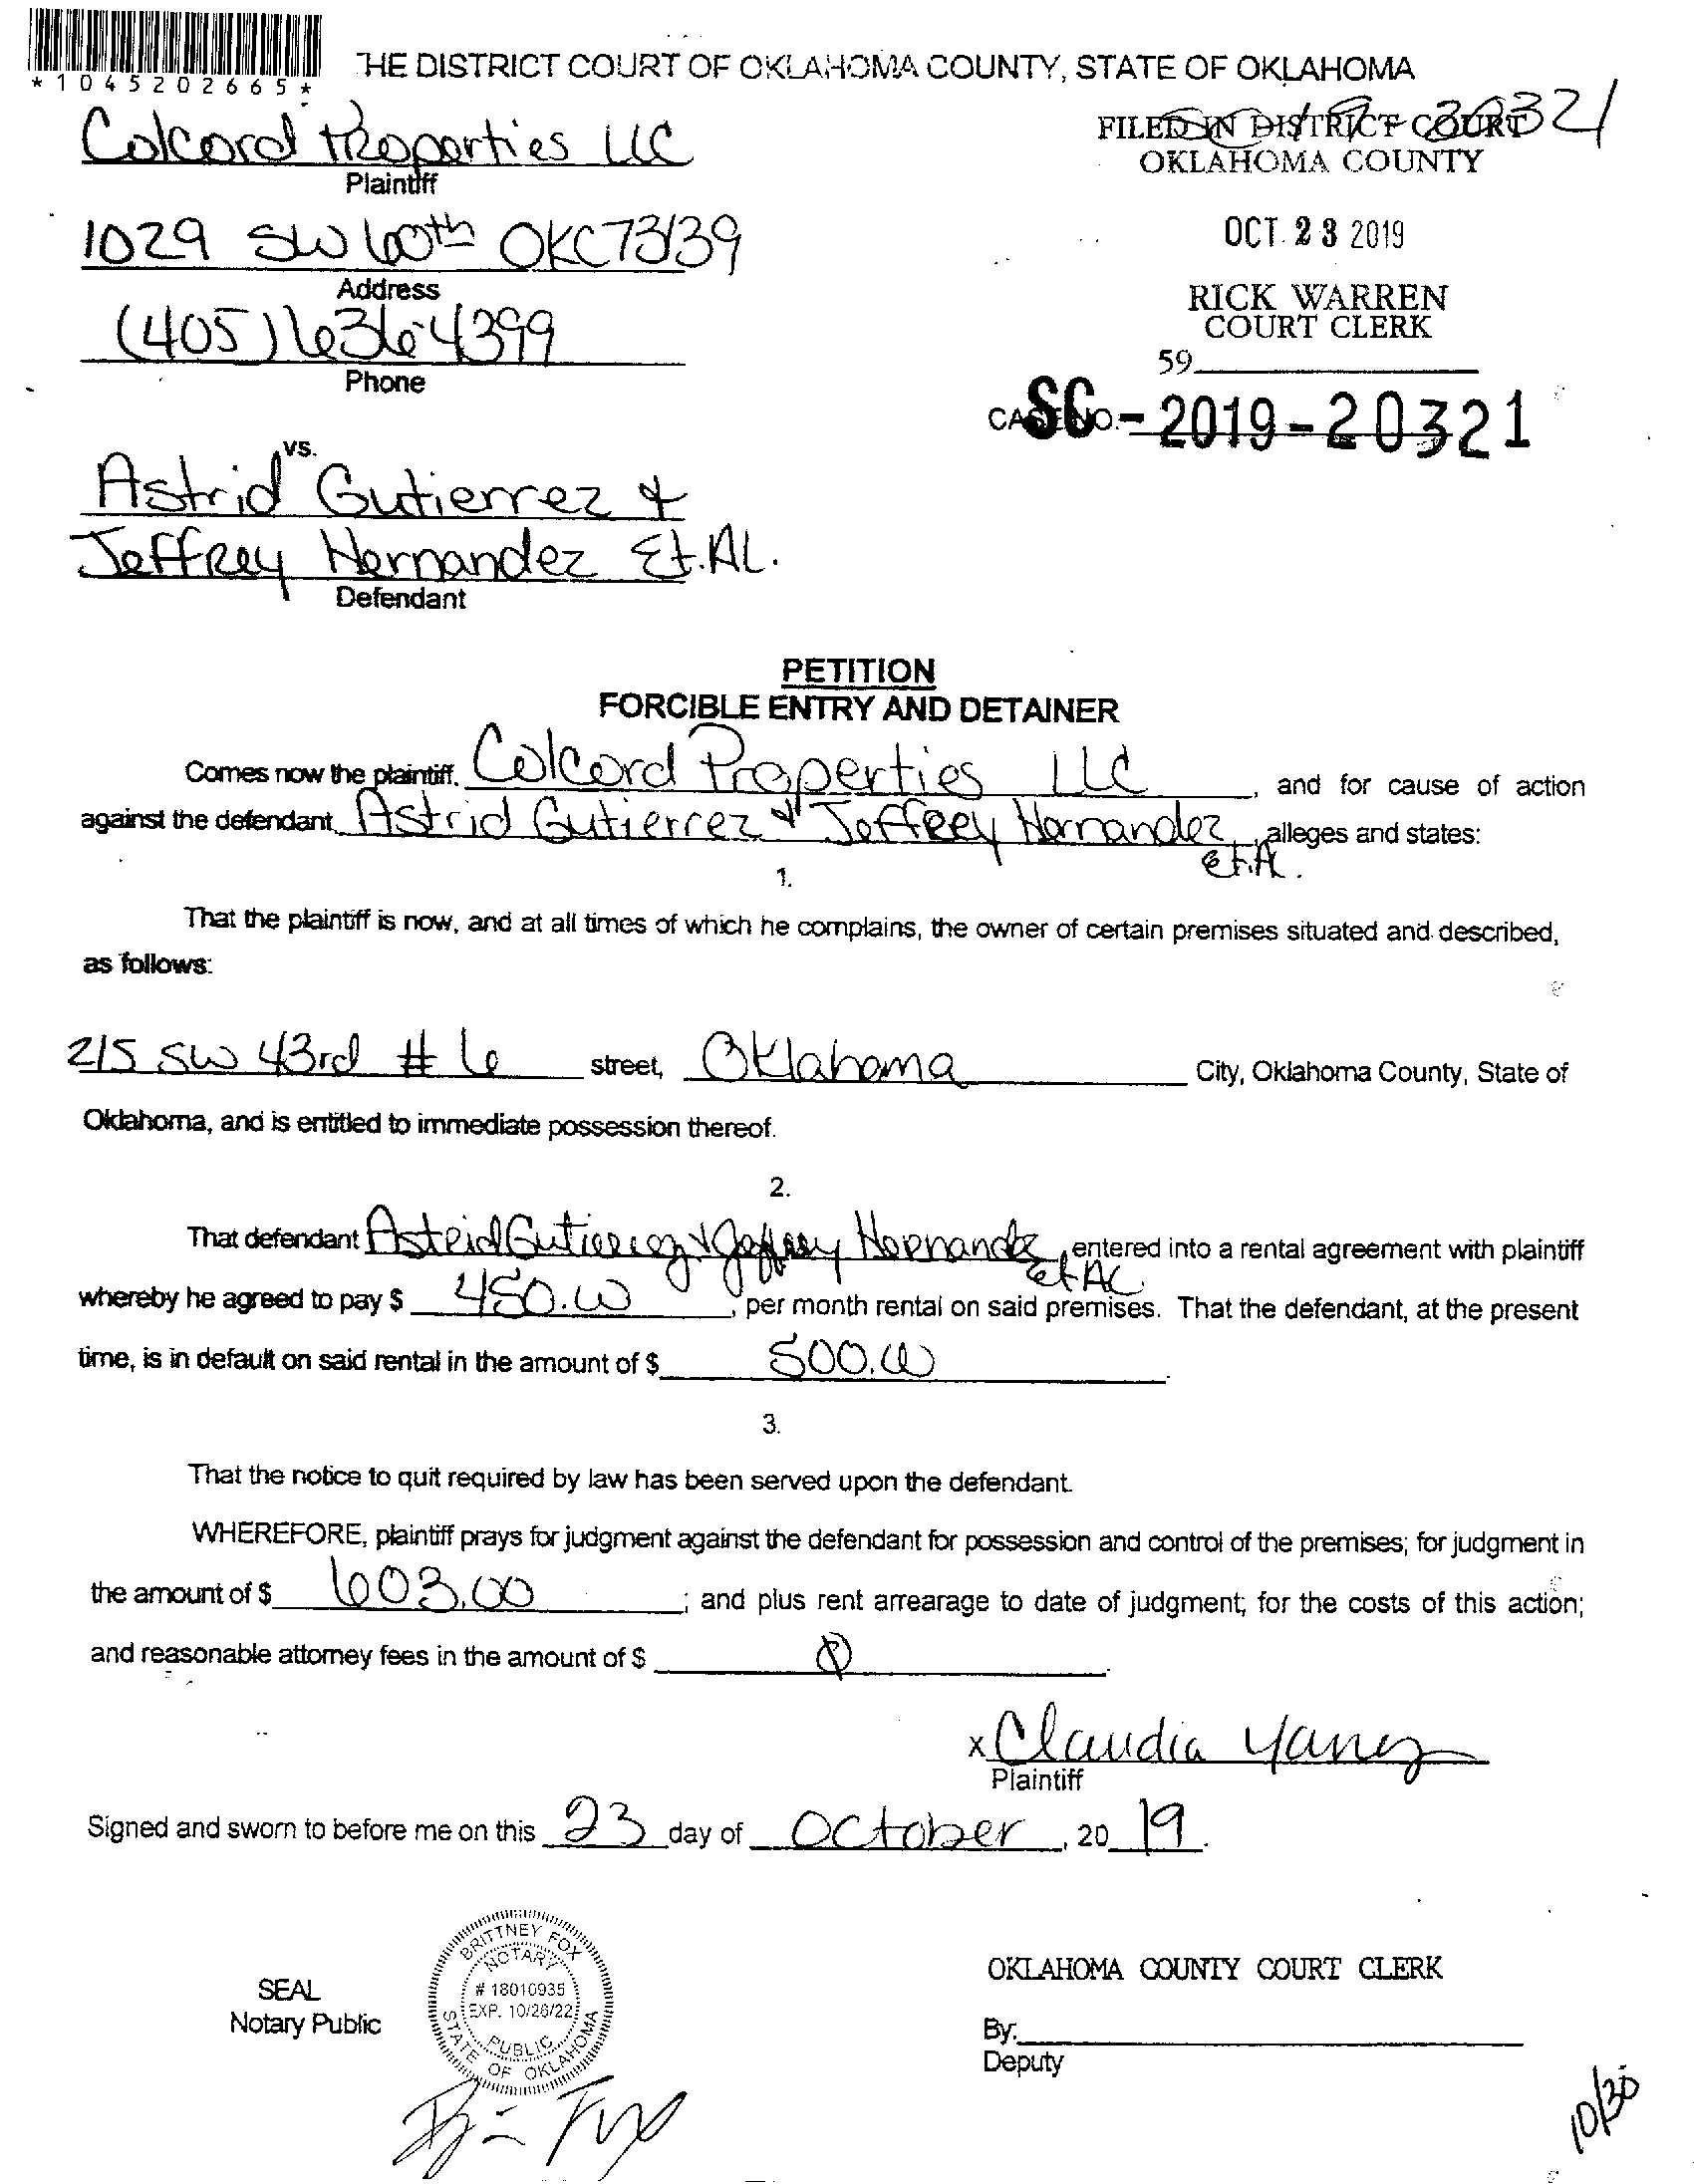 *1045202665*
THE DISTRICT COURT OF OKLAHOMA COUNTY, STATE OF OKLAHOMA
Colcord Properties LLC
Plaintiff
FILED IN DISTRICT COURT
OKLAHOMA COUNTY
1029 SW 60th OKC 73139
Address
OCT 23 2019
(405) 636-4399
Phone
RICK WARREN
COURT CLERK
59
CASE NO. SC-2019-20321
vs.
Astrid Gutierrez &
Jeffrey Hernandez Et.AL.
Defendant
PETITION
FORCIBLE ENTRY AND DETAINER
Comes now the plaintiff, Colcord Properties LLC, and for cause of action
against the defendant Astrid Gutierrez & Jeffrey Hernandez, alleges and states:
et.Al.
1.
That the plaintiff is now, and at all times of which he complains, the owner of certain premises situated and described,
as follows:
215 SW 43rd # 6 street, Oklahoma City, Oklahoma County, State of
Oklahoma, and is entitled to immediate possession thereof.
2.
That defendant Astrid Gutierrez & Jeffrey Hernandez, entered into a rental agreement with plaintiff
et AL.
whereby he agreed to pay $ 450.00, per month rental on said premises. That the defendant, at the present
time, is in default on said rental in the amount of $ 500.00
3.
That the notice to quit required by law has been served upon the defendant.
WHEREFORE, plaintiff prays for judgment against the defendant for possession and control of the premises; for judgment in
the amount of $ 603.00; and plus rent arrearage to date of judgment; for the costs of this action;
and reasonable attorney fees in the amount of $ 0
x Claudia Yanez
Plaintiff
Signed and sworn to before me on this 23 day of October, 2019.
SEAL
Notary Public
BRITTNEY FOX
NOTARY
# 18010935
EXP. 10/26/22
PUBLIC
STATE OF OKLAHOMA
OKLAHOMA COUNTY COURT CLERK
By:
Deputy
10/30